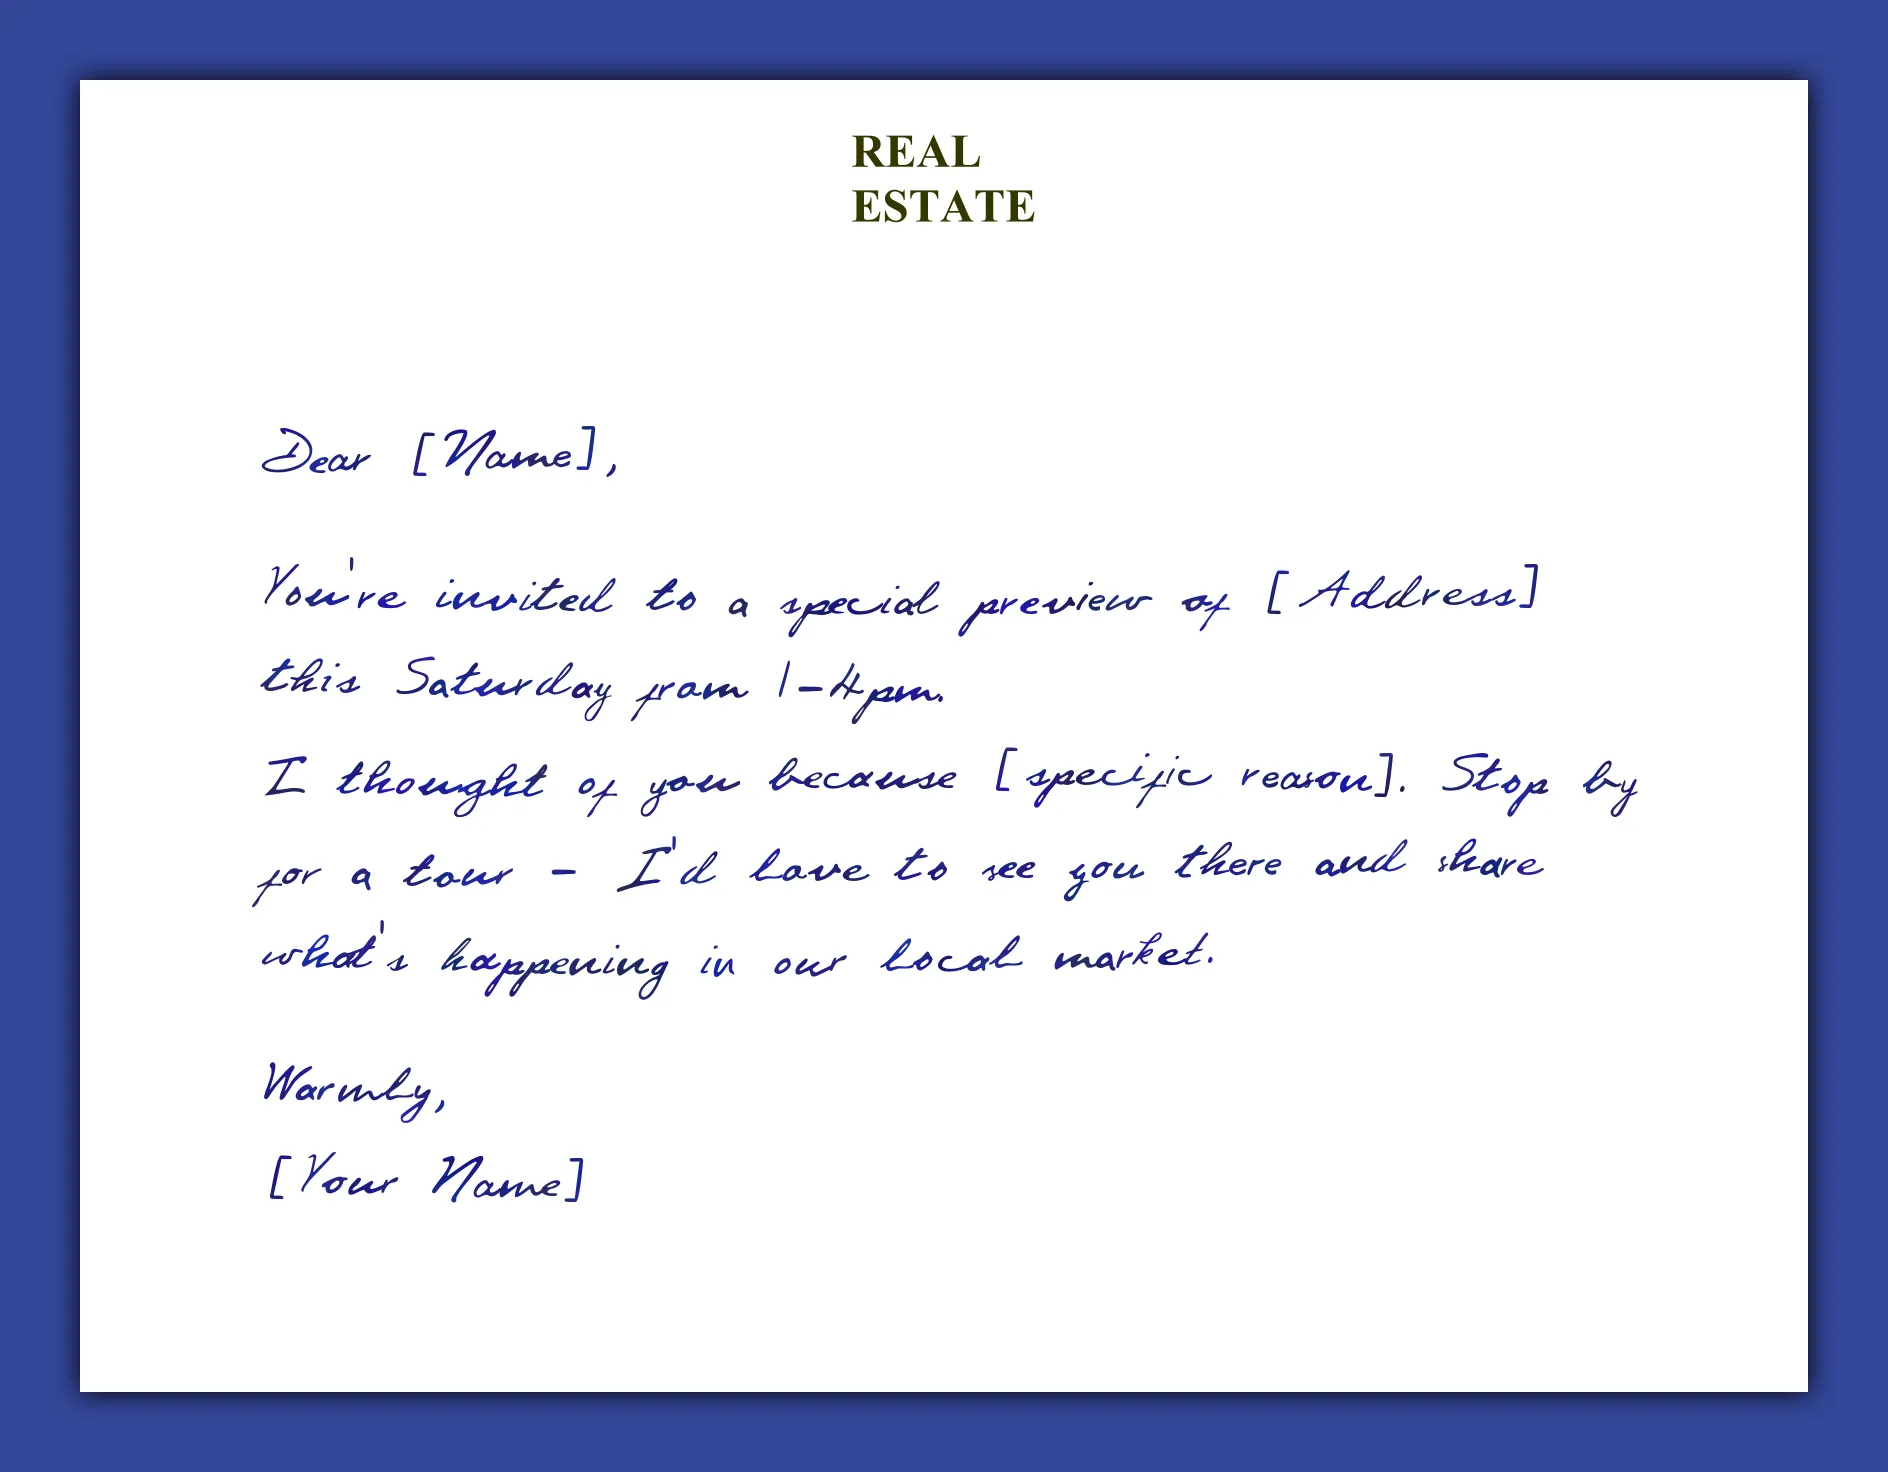 REAL
ESTATE
Dear [Name],
You're invited to a special preview of [Address]
this Saturday from 1-4pm.
I thought of you because [specific reason]. Stop by
for a tour - I'd love to see you there and share
what's happening in our local market.
Warmly,
[Your Name]